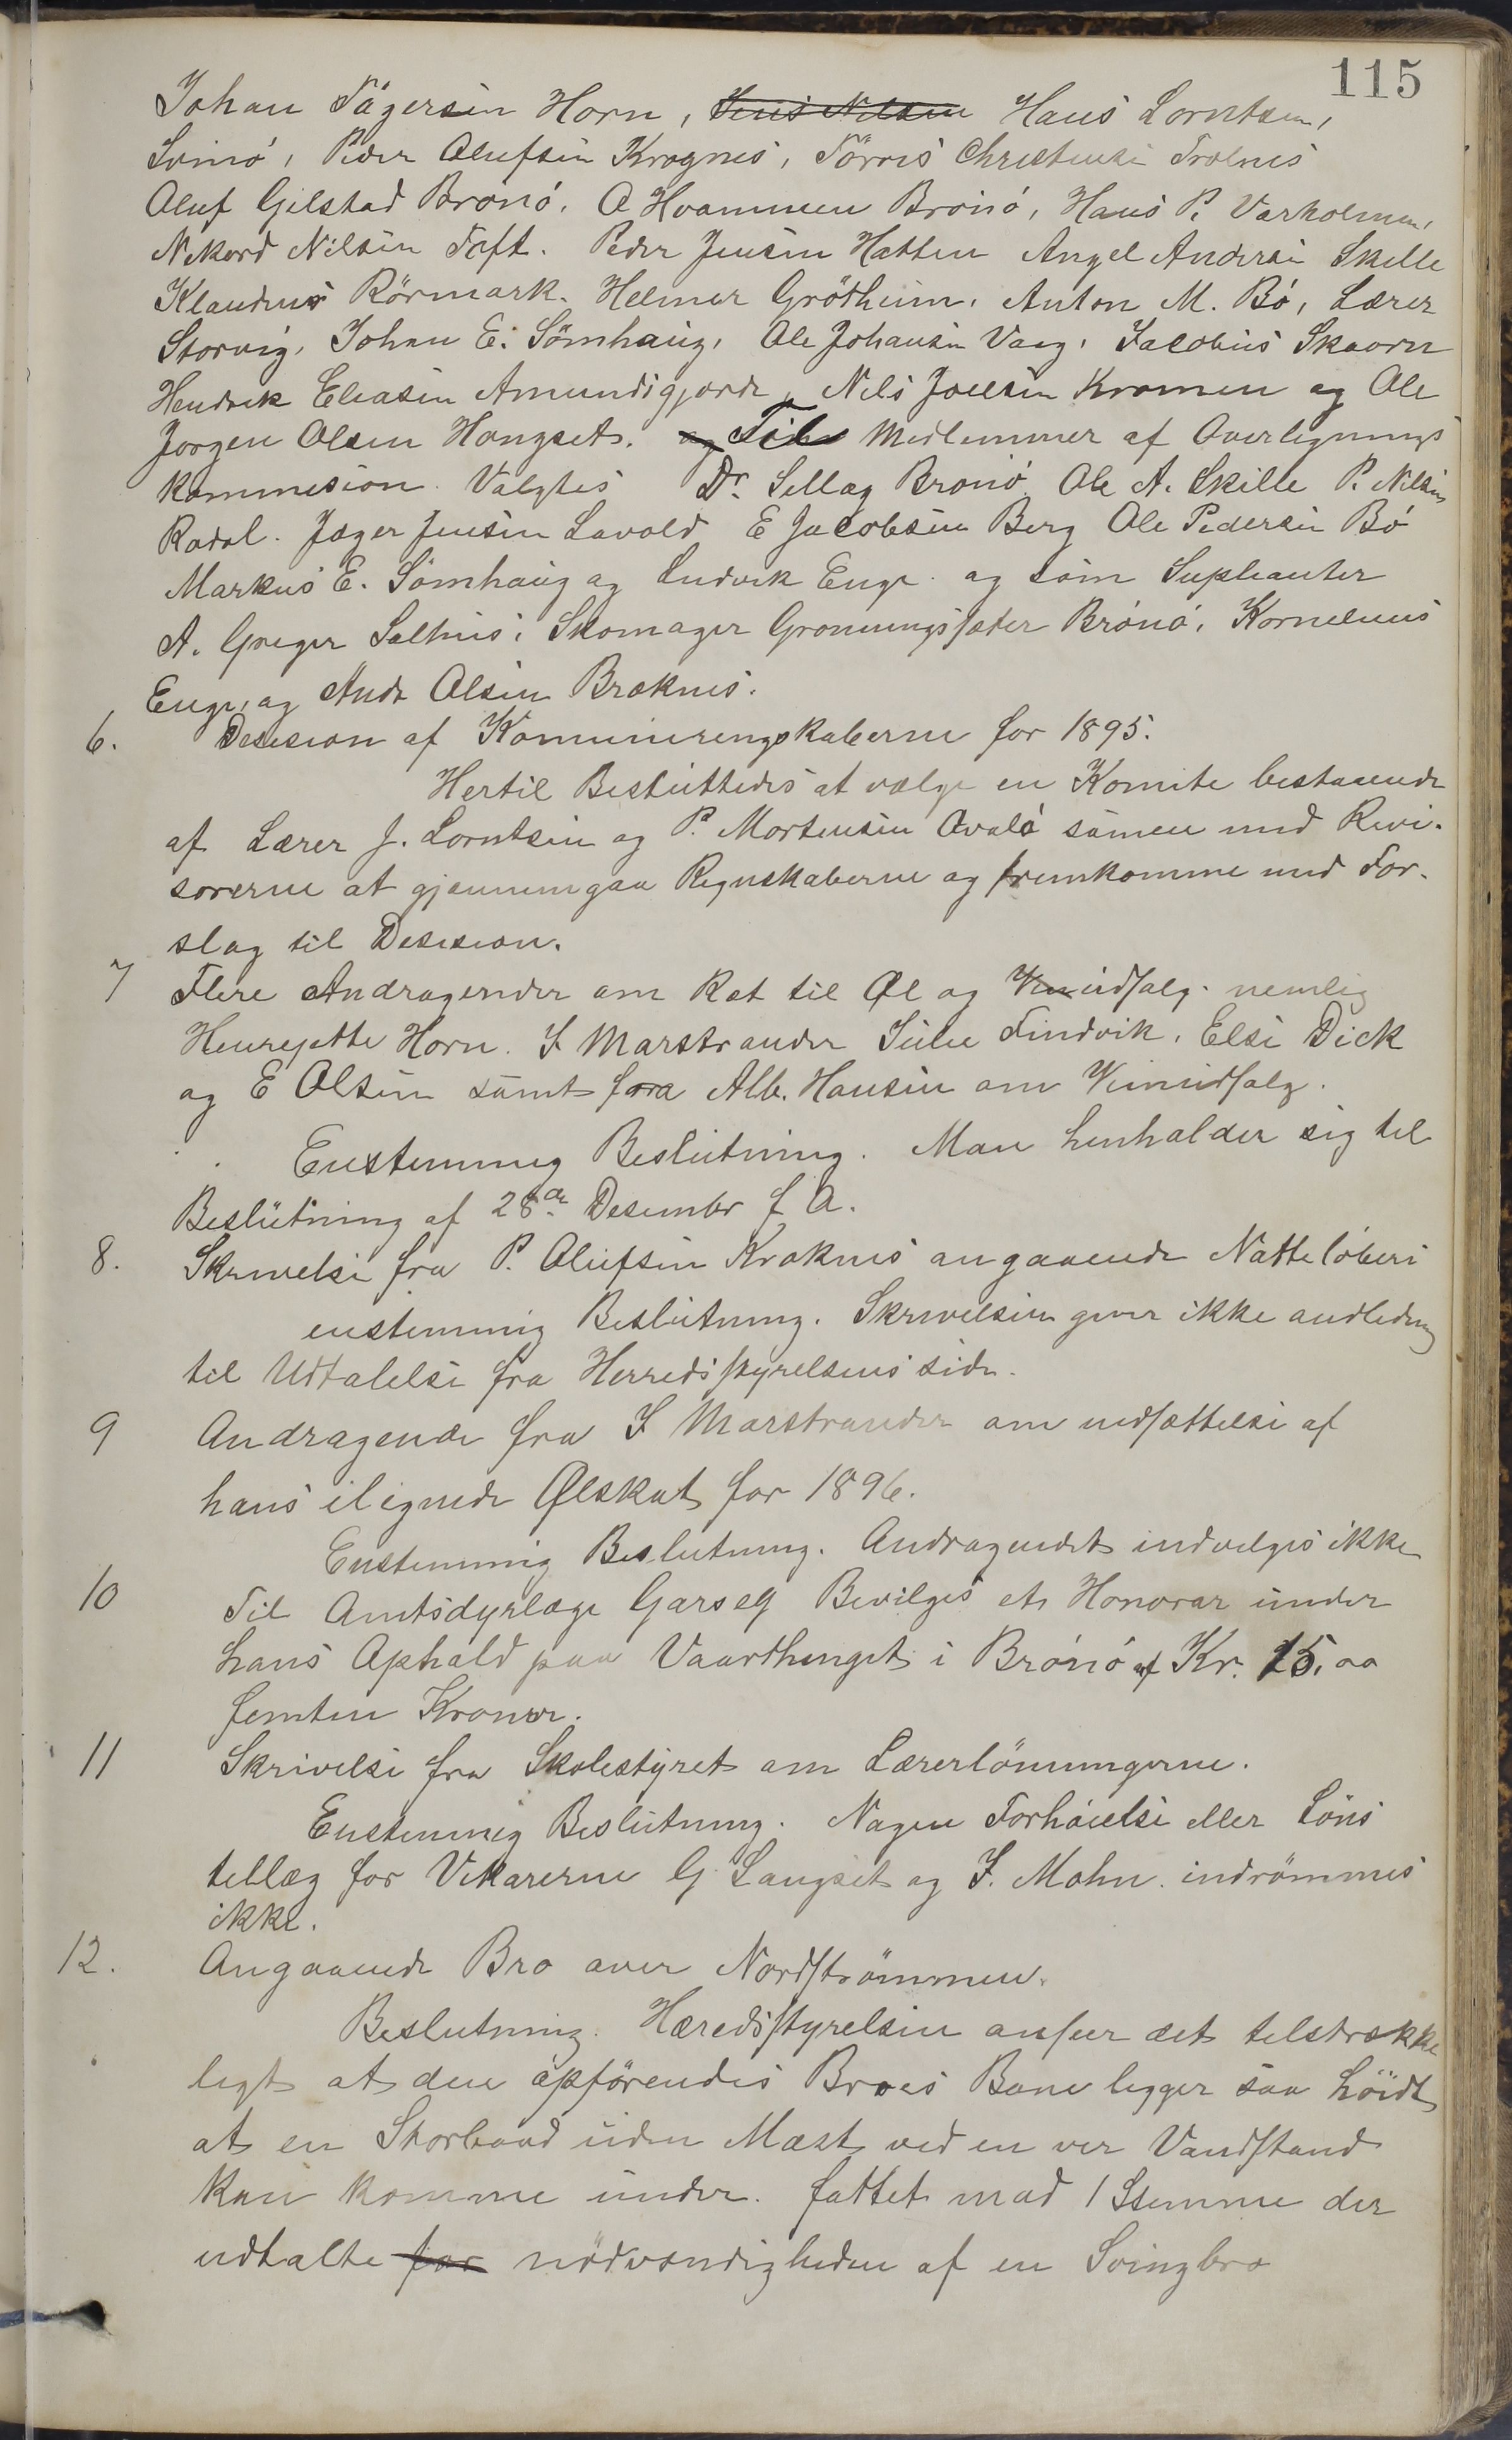 115
Johan Jägersen Horn, Jens Nilsen Hans Lorntsen,
Svinö, Peder Olufsen Krognes, Törris Christensen Trælnes
Oluf Gilstad Brönö. O Hvammen Brönö, Hans P. Varholmen,
Nekord Nilsen Toft. Peder Jensen Hatten Angel Andersen Skille
Klaudius Rörmark. Helmer Grötheim, Anton M. Bö, Lærer
Storvig, Johan E. Sömhaug, Ole Johansen Vaag, Jacobus Skaorn
Hendrik Eliasen Amundsgjorde, Nils Joelsen Kromen og Ole
Jorgen Olsen Hongset. og Til Medlemmer af Overlignings
kommesion Valgtes Dr. Sellæg Brönö Ole A. Skille P. Nilsen
Rodal. Jæger Jensen Lavold E Jacobsen Berg Ole Pedersen Bö
Markus E. Sömhaug og Ludvik Enge og som Supleanter
A. Greger Salhus, Skomager Gronningsæter Brönö, Kornelius
Enge, og Andr Olsen Broknes.
6. Desision af Kommuneregnskaberne for 1895.
Hertil Besluttedes at vælge en Komite bestaaende
af Lærer J. Lorntsen og P. Mortensen Ovalö samen med Revi-
sorerne at gjennemgaa Regnskaberne og fremkomme med For-
slag til Desision.
7 Flere Andragender om Ret til Øl og Vinudsalg. nemlig
Henrejette Horn. J Marstrander Julie Findvik, Else Dick
og E Olsen samt fra Alb. Hansen om Vinudsalg.
Enstemmig Beslutning. Man henholder sig til
Beslutning af 28de Desember f A.
8. Skrivelse fra P. Olufsen Kroknes angaaende Natteløberi
enstemmig Beslutning. Skrivelsen giver ikke andledning
til Udtalelse fra Herredsstyrelsens side.
9 Andragende fra J Marstrander om nedsættelse af
hans ilignede Ølskat for 1896.
Enstemmig Beslutning. Andragendet indvelges ikke
10 Til Amtsdyrlæge Garseg Bevilges et Honorar under
hans Ophald paa Vaarthinget i Brönö af Kr. 15.00
femten Kroner.
11 Skrivelse fra Skolestyret om Lærerlönningerne.
Enstemmig Beslutning. Nogen Forhöielse eller Löns
tellæg for Vikarerne G. Langset og J. Mohn indrömmes
ikke.
12. Angaaende Bro over Nordströmmen.
Beslutning. Hæredsstyrelsen anseer det tilstrække
ligt at den opförendes Broes Bane ligger saa höidt
at en Storbaad uden Mast ved en ver Vandstand
kan komme under. fattet mod 1 Stemme der
udtalte for nödvændigheden af en Svingbro